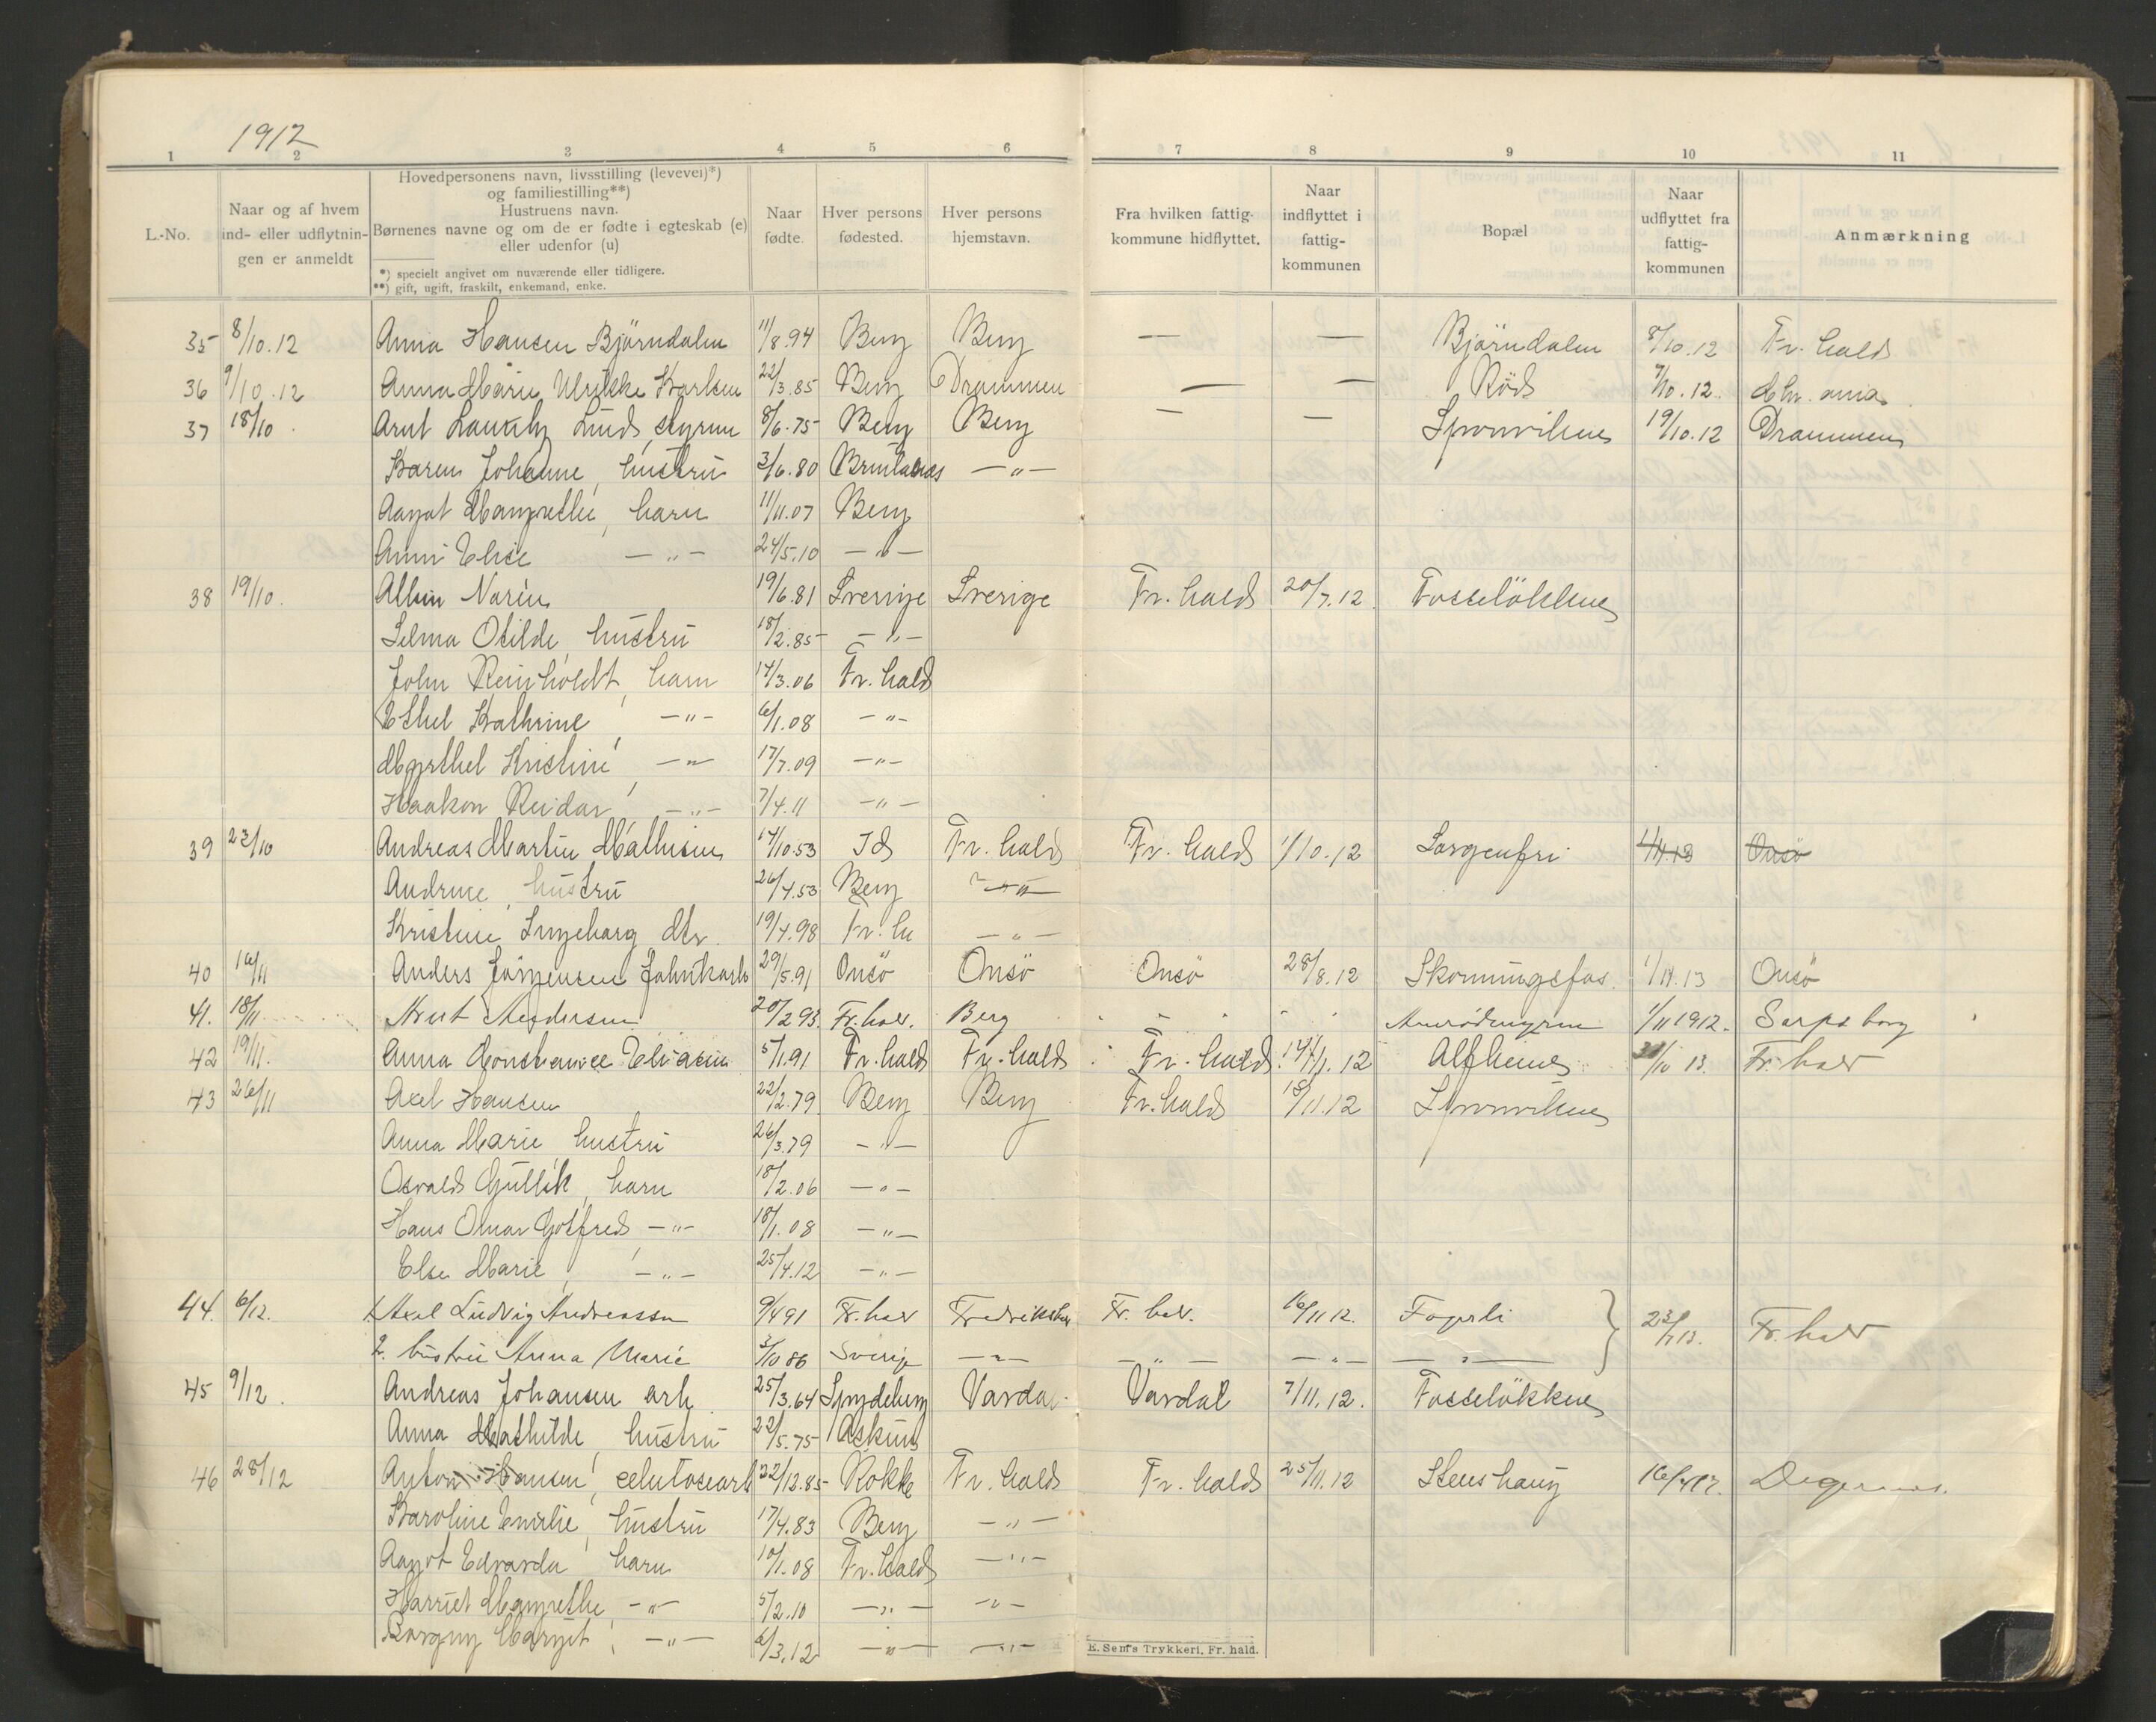 1912
1 2 3 4 5 6 7 8 9 10 11
L.-No.
Naar og af hvem ind- eller udflytnin- gen er anmeldt
Hovedpersonens navn, livsstilling (levevei)*)
og familiestilling**)
Hustruens navn.
Børnenes navne og om de er fødte i egteskab (e)
eller udenfor (u)
*) specielt angivet om nuværende eller tidligere.
**) gift, ugift, fraskilt, enkemand, enke.
Naar fødte.
Hver persons fødested.
Hver persons hjemstavn.
Fra hvilken fattig- kommune hidflyttet.
Naar indflyttet i fattig- kommunen
Bopæl
Naar udflyttet fra fattig- kommunen
Anmærkning
35 8/10.12 Anna Hansen Björndalen 11/8.94 Berg Berg — — Björndalen 8/10.12 Fr. hald
36 9/10.12 Anna Marie Ulrikke Karlsen 22/3.85 Berg Drammen — — Röd 7/10.12 Chr. ania
37 18/10. Arnt Lauritz Lund, styrm 8/6.75 Berg Berg — — Sponviken 19/10.12 Drammen
Karen Johanne, hustru 3/6.80 —„—
Aagot Margrethe, barn 11/11.07 Berg
Anni Elise —„— 24/5.10 —„—
38 19/10. Albin Norén 19/6.81 Sverige Sverige Fr. hald 20/7.12 Fosseløkken
Selma Otilde, hustru 18/2.85 —„—
John Reinholdt, barn 14/3.06 Fr. hald
Ethel Kathrine, —„— 6/1.08 —„—
Myrthel Kristine, —„— 17/7.09 —„—
Haakon Reidar, —„— 7/4.11 —„—
39 23/10 Andreas Martin Mathisen 14/10.53 Id Fr. hald Fr. hald 1/10.12 Sorgenfri 1/11.13 Onsö
Andrine, hustru 26/4.53 Berg —„—
Kristine Ingeborg dtr. 19/4.98 Fr. h —„—
40 16/11 Anders Jörgensen 29/5.91 Onsö Onsö Onsö 28/8.12 Skonningsfos. 1/11.13 Onsö
41. 18/11 Andersen 20/2 93. Fr. hal. Berg „ „ „ „ „ 1/11 1912. Sarpsborg
42 19/11. Anna Constance Eliasen 5/1.91 Fr. hald Fr. hald Fr. hald. 14/11.12 Alfheim 31/10 13. Fr. hald
43 26/11 Axel Hansen 22/2.79 Berg Berg Fr. hald 18/11.12 Sponviken
Anna Marie, hustru 26/3.79 —„—
Osvald Gullik, barn 18/2.06 —„—
Hans Omar Gotfred —„— 18/1.08 —„—
Else Marie, —„— 25/4.12 —„—
44. 6/12. 1. Axel Ludvig Andreassen 9/4 91 Fr. hal Fredrikshal Fr. hal. 16/11 12. Fagerli 23/1 13. Fr. hald
2. hustru Anna Marie 3/10 86 Sverige —„— —„— —„— —„—
45 9/12. Andreas Johansen arb. 25/3.64 Spydeberg Vardal Vardal 7/11.12. Fosseløkken
Anna Mathilde, hustru 22/5.75 Askim
46 28/12 Anton Hansen, celulosearb 22/12.85 Rokke Fr. hald Fr. hald 25/11.12 Stenshaug 16/4 17. Degernes.
Karoline Emilie, hustru 17/4.83 Berg —„—
Aagot Edvarda barn 10/1.08 Fr. hald —„—
Harriet Margrethe, —„— 5/2.10 —„— —„—
Borgny Margit, —„— 6/3.12 —„— —„—
E. Sem's Trykkeri, Fr. hald.